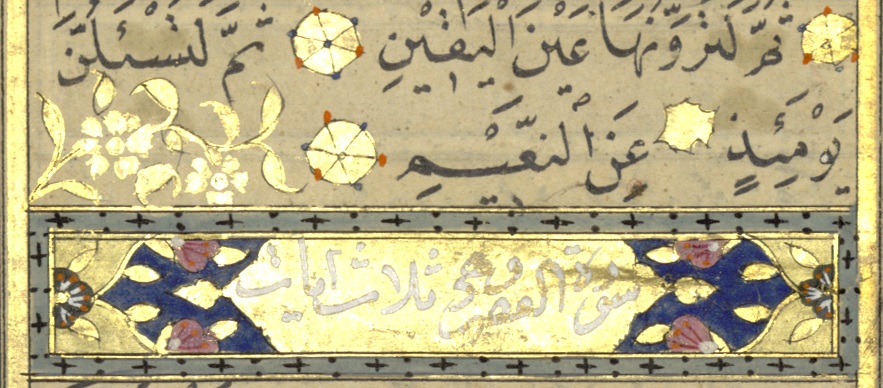 ثُمَّ لَتَرَوُنَّهَا عَيْنَ الْيَقِيْنِ ثُمَّ لَتُسْئَلُنَّ
يَوْمَئِذٍ عَنِ النَّعِيْمِ
سورة العصر وهي ثلاث ايات